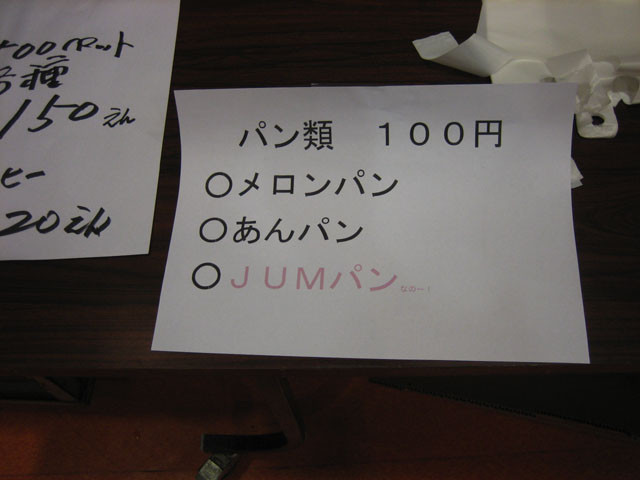 500mlペット
各種
150えん
ヒー
20えん
パン類　１００円
○メロンパン
○あんパン
○ＪＵＭパンなのー！